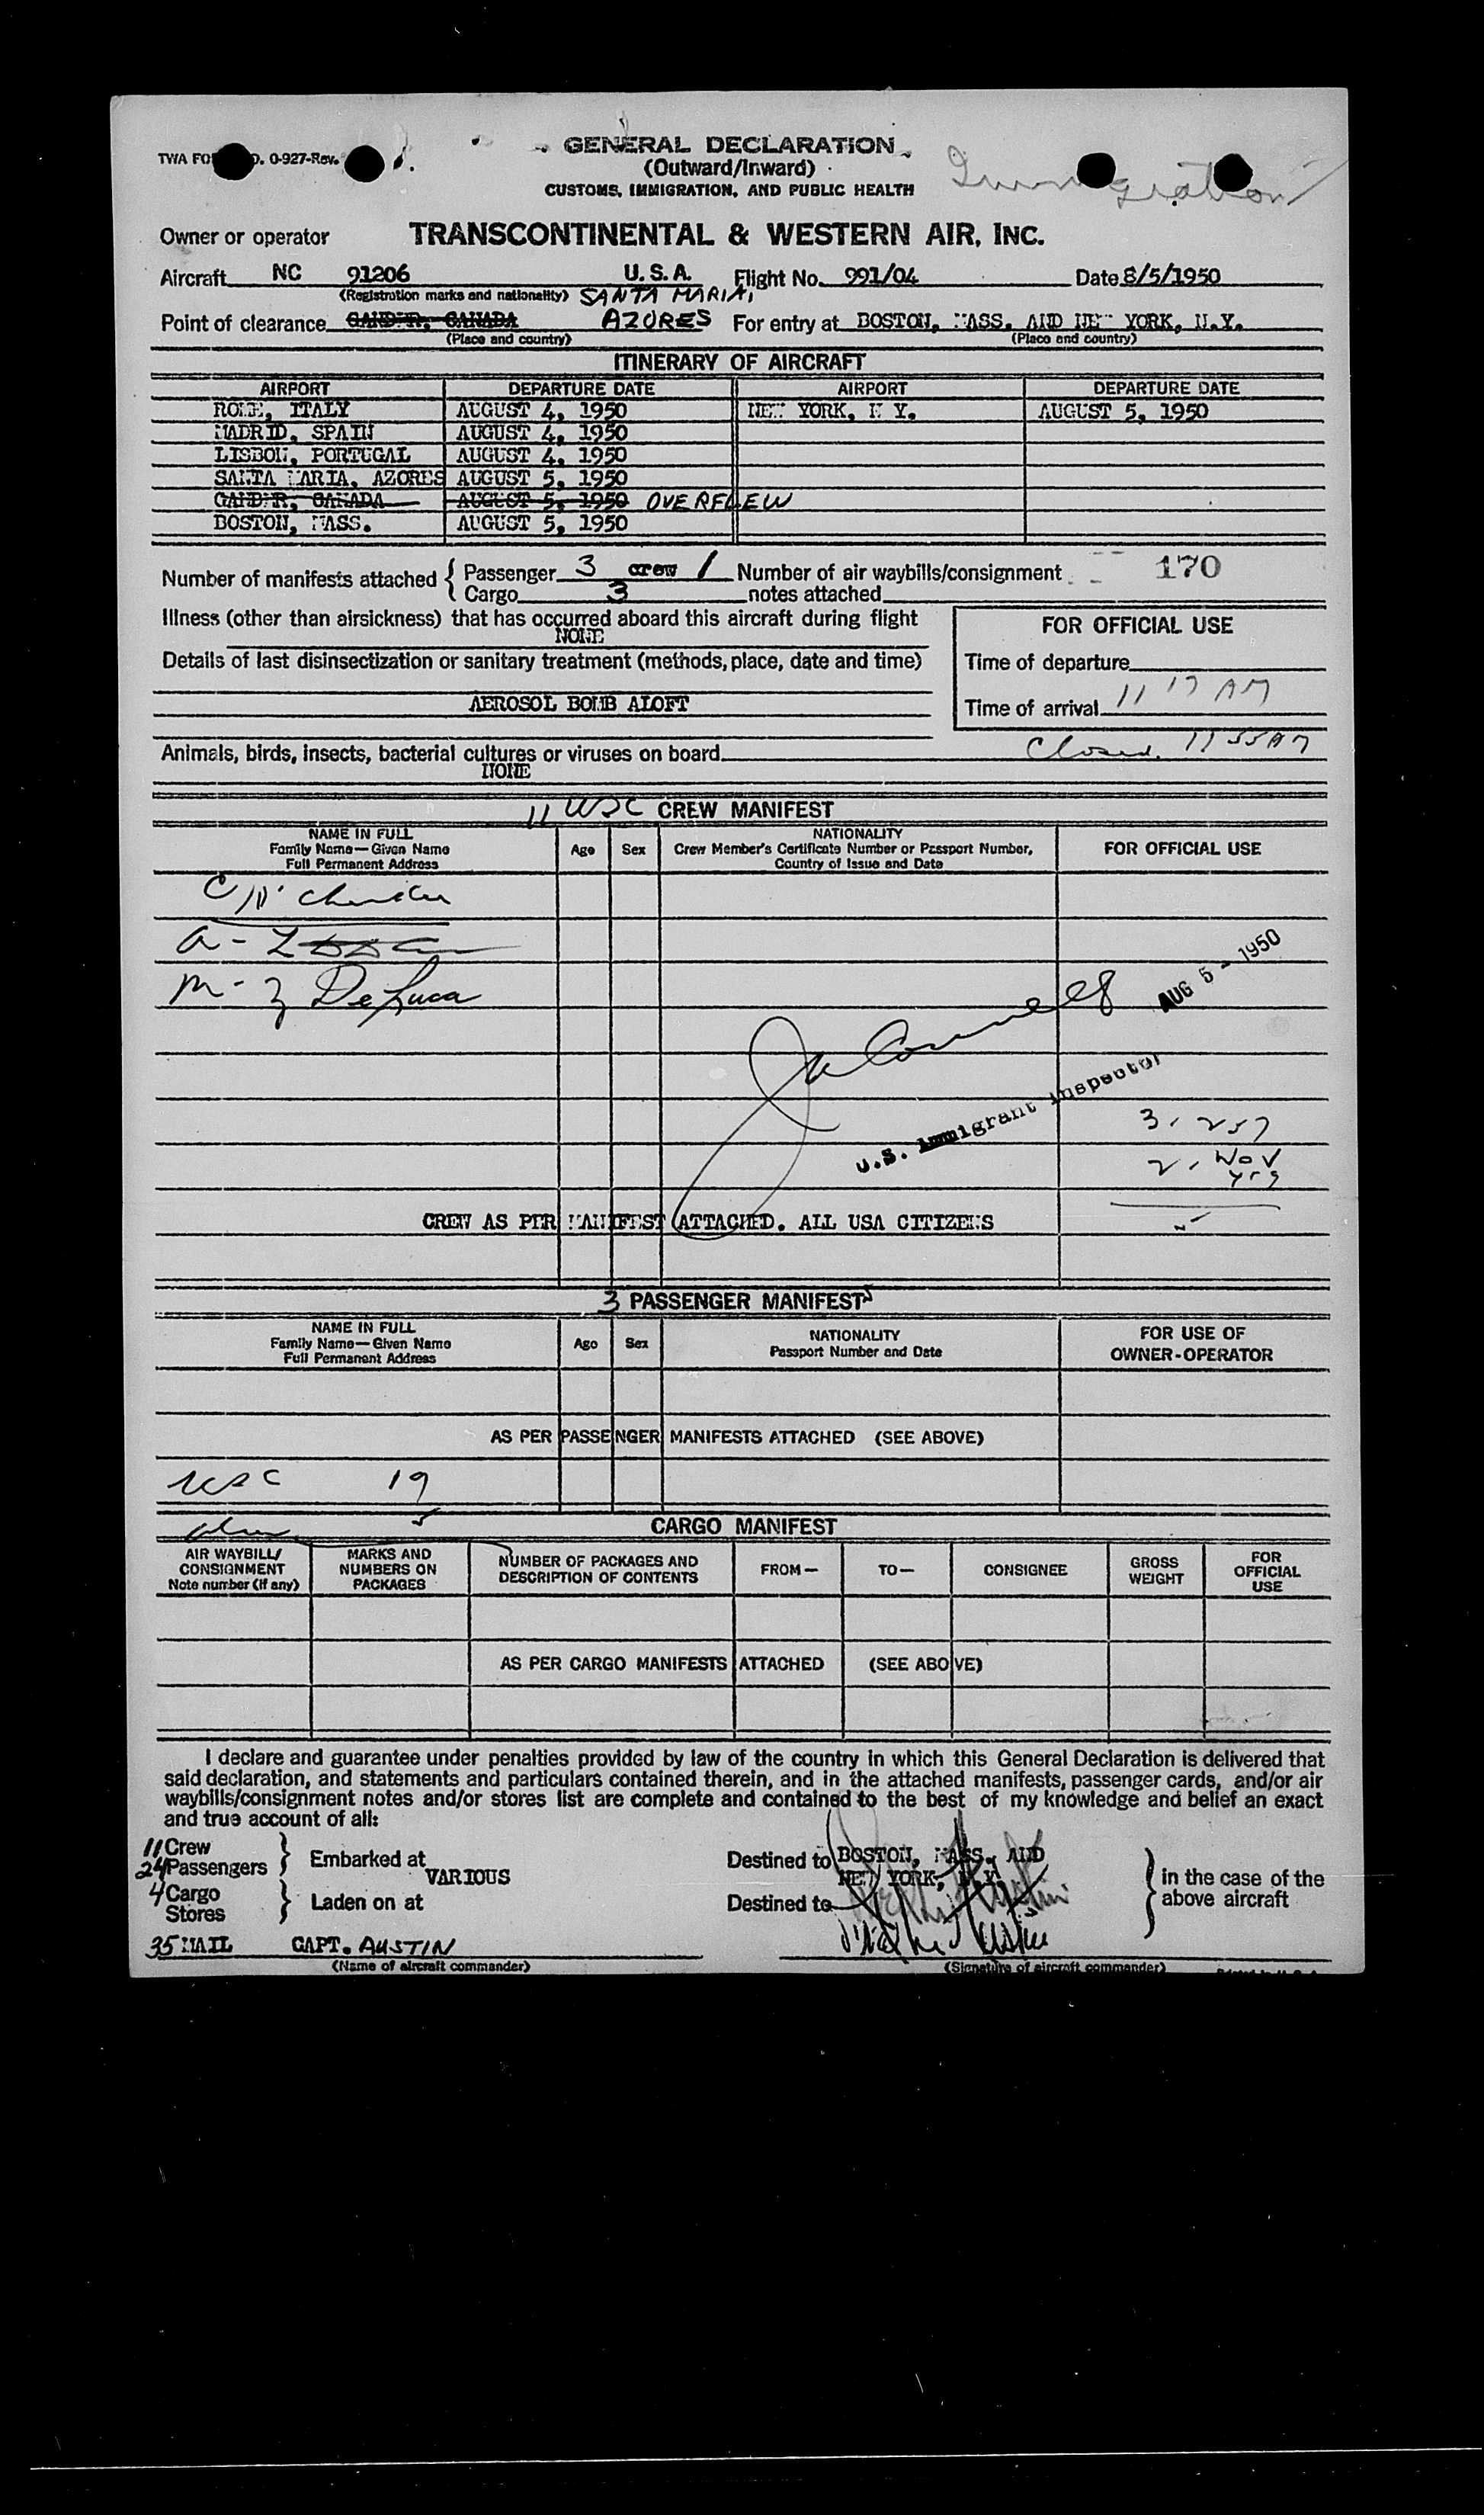 GENERAL DECLARATION
TWA FO O. 0-927-Rev.
(Outward/Inward)
CUSTOMS, IMMIGRATION, AND PUBLIC HEALTH
Immigration
Owner or operator TRANSCONTINENTAL & WESTERN AIR, INC.
Aircraft NC 91206 U. S. A. Flight No. 991/04 Date 8/5/1950
(Registration marks and nationality) SANTA MARIA,
Point of clearance GANDER, CANADA AZORES For entry at BOSTON, MASS. AND NEW YORK, N.Y.
(Place and country) (Place and country)
ITINERARY OF AIRCRAFT
AIRPORT DEPARTURE DATE AIRPORT DEPARTURE DATE
ROME, ITALY AUGUST 4, 1950 NEW YORK, N Y. AUGUST 5, 1950
MADRID, SPAIN AUGUST 4, 1950
LISBON, PORTUGAL AUGUST 4, 1950
SANTA MARIA, AZORES AUGUST 5, 1950
GANDER, CANADA AUGUST 5, 1950 OVERFLEW
BOSTON, MASS. AUGUST 5, 1950
Number of manifests attached { Passenger 3 crew 1 Number of air waybills/consignment 170
Cargo 3 notes attached
Illness (other than airsickness) that has occurred aboard this aircraft during flight
NONE
FOR OFFICIAL USE
Details of last disinsectization or sanitary treatment (methods, place, date and time)
Time of departure
AEROSOL BOMB ALOFT
Time of arrival 11 17 AM
Closed. 11 55 AM
Animals, birds, insects, bacterial cultures or viruses on board
NONE
11 USC CREW MANIFEST
NAME IN FULL
Family Name—Given Name
Full Permanent Address
Age Sex
NATIONALITY
Crew Member's Certificate Number or Passport Number,
Country of Issue and Date
FOR OFFICIAL USE
M - 3 DeLuca
AUG 5 - 1950
U.S. Immigrant Inspector
3. 257
2. Nov
yrs
CREW AS PER MANIFEST ATTACHED. ALL USA CITIZENS
3 PASSENGER MANIFESTS
NAME IN FULL
Family Name—Given Name
Full Permanent Address
Age Sex
NATIONALITY
Passport Number and Date
FOR USE OF
OWNER-OPERATOR
AS PER PASSENGER MANIFESTS ATTACHED (SEE ABOVE)
USC 19
5
CARGO MANIFEST
AIR WAYBILL/
CONSIGNMENT
Note number (if any)
MARKS AND
NUMBERS ON
PACKAGES
NUMBER OF PACKAGES AND
DESCRIPTION OF CONTENTS
FROM— TO— CONSIGNEE
GROSS
WEIGHT
FOR
OFFICIAL
USE
AS PER CARGO MANIFESTS ATTACHED (SEE ABOVE)
I declare and guarantee under penalties provided by law of the country in which this General Declaration is delivered that
said declaration, and statements and particulars contained therein, and in the attached manifests, passenger cards, and/or air
waybills/consignment notes and/or stores list are complete and contained to the best of my knowledge and belief an exact
and true account of all:
11 Crew
24 Passengers } Embarked at VARIOUS Destined to BOSTON, MASS. AND
NEW YORK, N.Y.
4 Cargo
Stores } Laden on at Destined to
} in the case of the
above aircraft
35 MAIL CAPT. AUSTIN
(Name of aircraft commander) (Signature of aircraft commander)